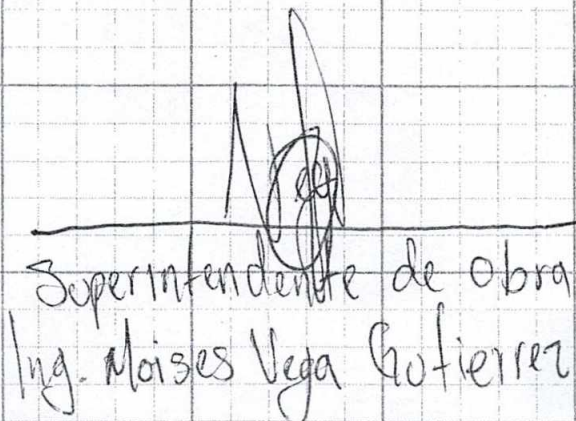 Superintendente de Obra
Ing. Moises Vega Gutierrez